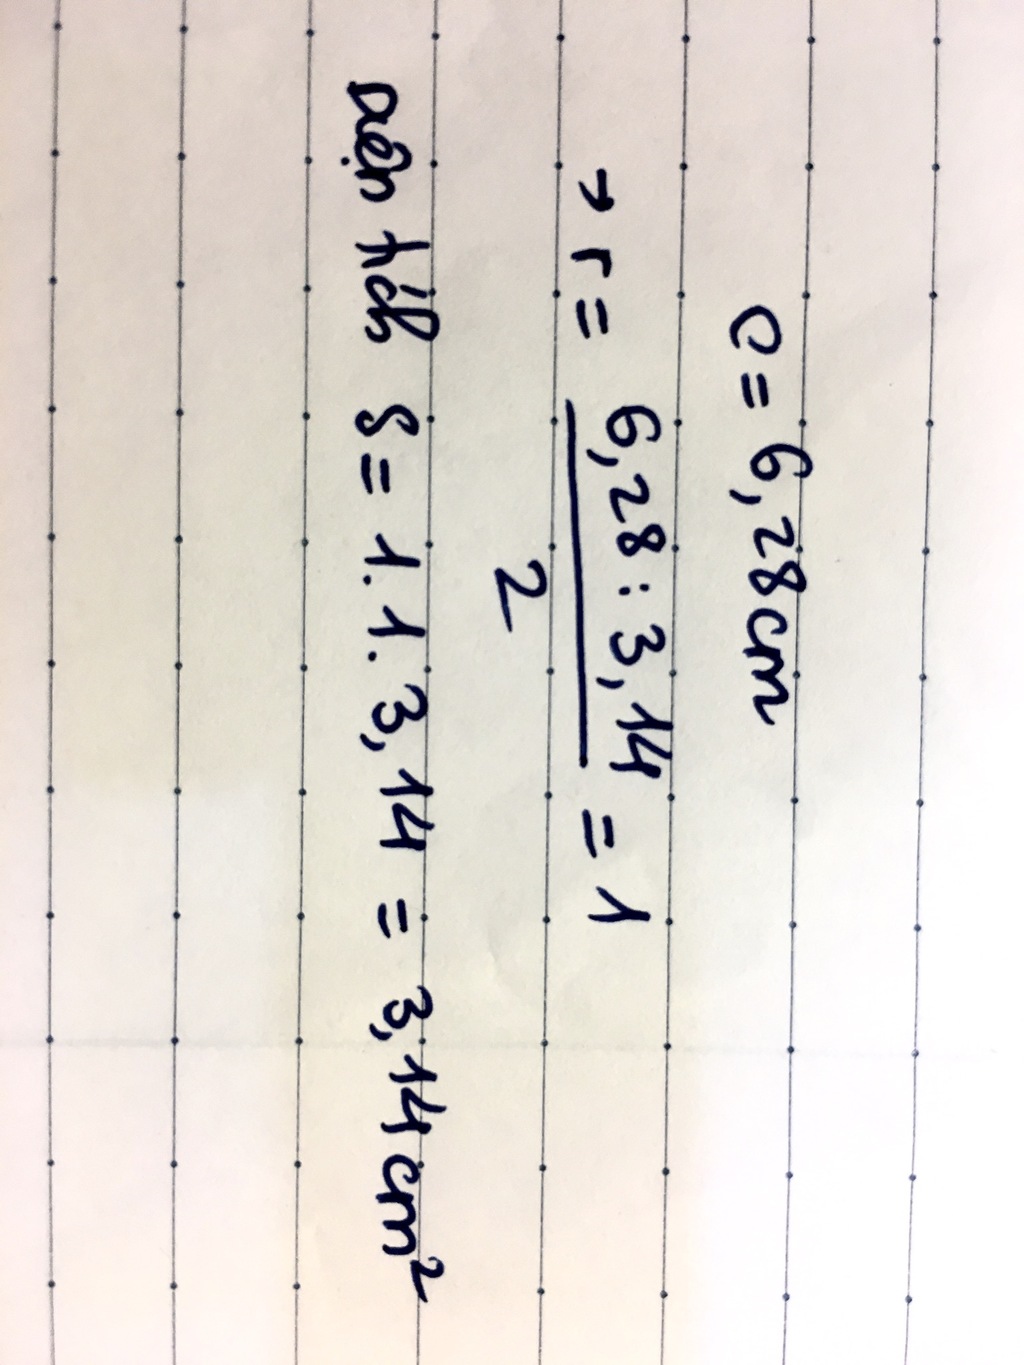 C = 6,28cm
→ r = 6,28 : 3,14 = 1
2
Diện tích S = 1.1.3,14 = 3,14cm²